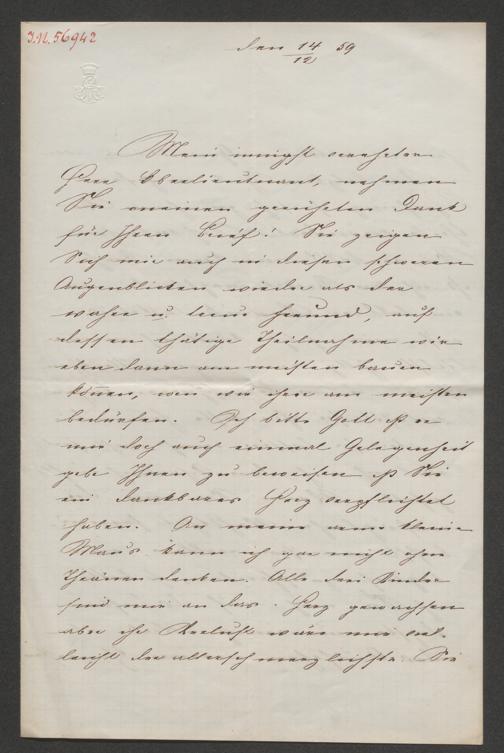 J.N. 56942
den 14/12 59
Mein innigst verehrter
Herr Oberlieutnant, nehmen
Sie meinen gerührten Dank
für Ihren Brief! Sie zeigen
Sich mir auch in diesen schweren
Augenblicken wieder als der
wahre u. treue Freund, auf
dessen thätige Theilnahme wir
eben dann am meisten bauen
können, wen wir ihrer am meisten
bedürfen. Ich bitte Gott ß er
mir doch auch einmal Gelegenheit
gebe Ihnen zu beweisen ß Sie
ein dankbares Herz verpflichtet
haben. An meine arme kleine
Maus kann ich gar nicht ohne
Thränen denken. Alle drei Kinder
sind mir an das Herz gewachsen
aber ihr Verlust wäre mir viel-
leicht der allerschmerzlichste. Sie